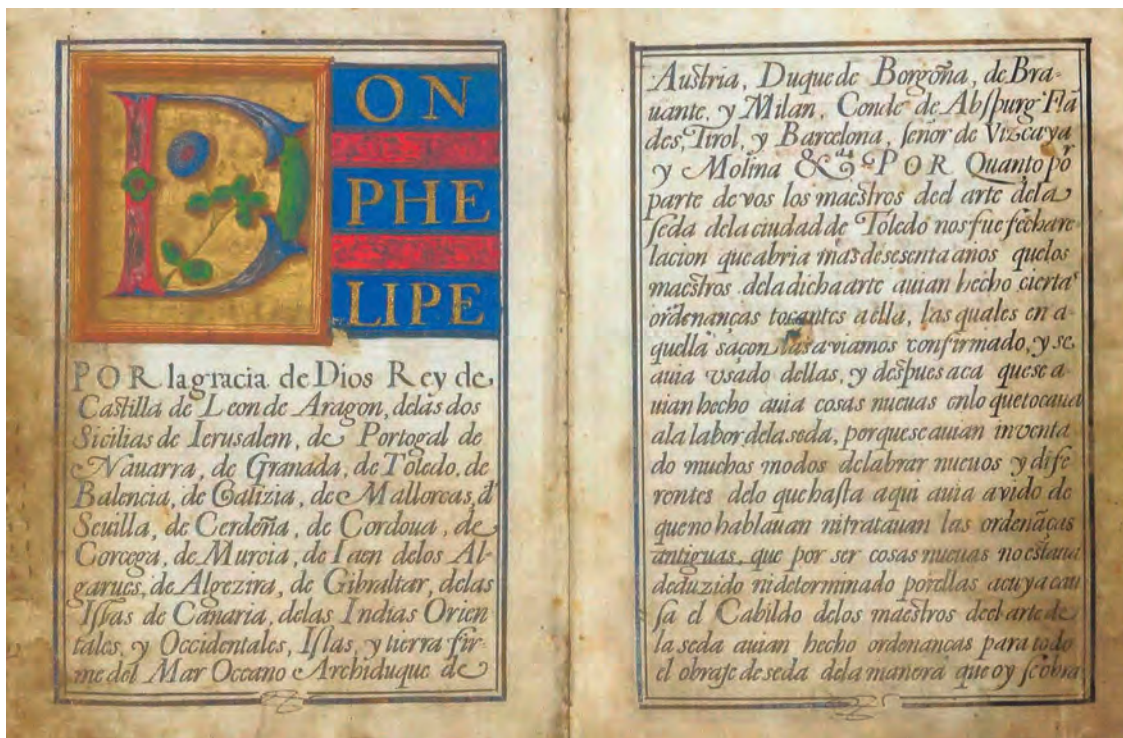 DON
PHE
LIPE
POR la gracia de Dios Rey de
Castilla de Leon de Aragon, delas dos
Sicilias de Ierusalem, de Portogal de
Nauarra, de Granada, de Toledo, de
Balencia, de Galizia, de Mallorcas, d'
Seuilla, de Cerdeña, de Cordoua, de
Corcega, de Murcia, de Iaen delos Al-
garues, de Algezira, de Gibraltar, delas
Islas de Canaria, delas Indias Orien
tales, y Occidentales, Islas, y tierra fir-
me del Mar Occano Archiduque de
Austria, Duque de Borgoña, de Bra-
uante, y Milan, Conde de Abspurg Flã
des, Tirol, y Barcelona, señor de Vizcaya
y Molina &c POR Quanto por
parte de vos los maestros deel arte dela
seda dela ciudad de Toledo nos fue fecha re
lacion que abria mas de sesenta años quelos
maestros dela dicha arte auian hecho ciertas
ordenanças tocantes a ella, las quales en a-
quella saçon las aviamos confirmado, y se
auia vsado dellas, y despues aca que se a-
uian hecho auia cosas nueuas enlo que tocaua
ala labor dela seda, porque se auian inuenta
do muchos modos delabrar nueuos y dife
rentes delo que hasta aqui auia avido de
que no hablauan ni tratauan las ordenãcas
antiguas, que por ser cosas nueuas no estaua
deduzido ni determinado por ellas acuya cau
sa el Cabildo delos maestros deel arte de
la seda auian hecho ordenanças para todo
el obraje de seda dela manera que oy se obra